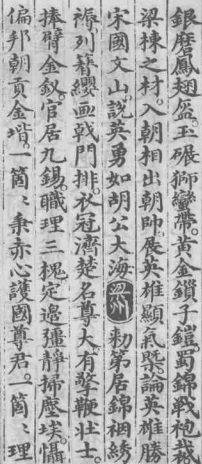 銀磨鳳翅盔。玉碾獅蠻帶。黃金鎖子鎧。蜀錦戰袍裁
梁棟之材。入朝相出朝帥。展英雄顯氣槩。論英雄勝
宋國文山。說英勇如胡公大海。 勑第居錦裀綉
褥。列簪纓画戟門排。衣冠濟楚名尊大。有擎鞭壯士。
捧臂金釵。官居九錫。職理三槐。定邉疆靜掃塵埃。懾
偏邦朝貢金堦。一箇〻秉赤心護國尊君。一箇〻理